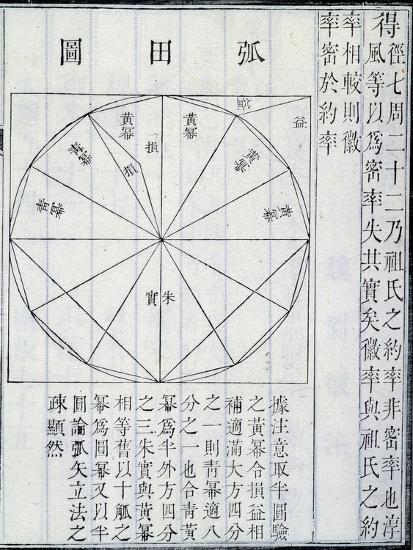 得徑七周二十二乃祖氏之約率非密率也淳
風等以爲密率失其實矣徽率與祖氏之約
率相較則徽
率密於約率
弧田圖
益
益
黃冪
黃冪
損
損
黃冪
青冪
黃冪
青冪
朱實
據注意取半圓驗
之黃冪令損益相
補適滿大方四分
之一則靑冪適八
分之一也合靑黃
冪爲半外方四分
之三朱實與黃冪
相等舊以十觚之
冪爲圓冪又以半
圓論弧矢立法之
疎顯然